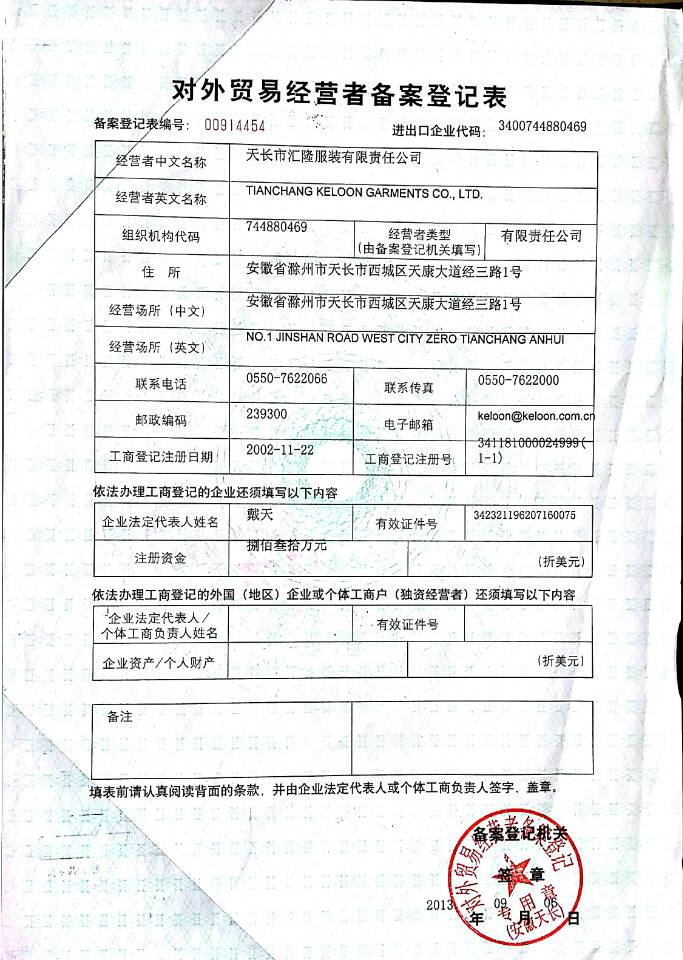 对外贸易经营者备案登记表
备案登记表编号： 00914454
进出口企业代码： 3400744880469
经营者中文名称 天长市汇隆服装有限责任公司
经营者英文名称 TIANCHANG KELOON GARMENTS CO., LTD.
组织机构代码 744880469 经营者类型 有限责任公司
(由备案登记机关填写)
住 所 安徽省滁州市天长市西城区天康大道经三路1号
经营场所（中文） 安徽省滁州市天长市西城区天康大道经三路1号
经营场所（英文） NO.1 JINSHAN ROAD WEST CITY ZERO TIANCHANG ANHUI
联系电话 0550-7622066 联系传真 0550-7622000
邮政编码 239300 电子邮箱 keloon@keloon.com.cn
工商登记注册日期 2002-11-22 工商登记注册号 341181000024999(
1-1)
依法办理工商登记的企业还须填写以下内容
企业法定代表人姓名 戴天 有效证件号 342321196207160075
注册资金 捌佰叁拾万元 (折美元)
依法办理工商登记的外国（地区）企业或个体工商户（独资经营者）还须填写以下内容
企业法定代表人/ 有效证件号
个体工商负责人姓名
企业资产/个人财产 (折美元)
备注
填表前请认真阅读背面的条款，并由企业法定代表人或个体工商负责人签字、盖章。
备案登记机关
签 章
2013 09 06
年 月 日
对外贸易经营者备案登记
专用章
(安徽天长)